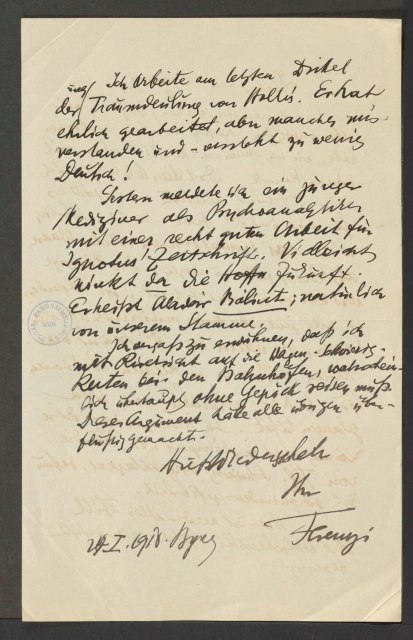 Ich arbeite am letzten Drittel
der Traumdeutung von Hollós. Er hat
ehrlich gearbeitet, aber manches miss-
verstanden und – versteht zu wenig
Deutsch!
Gestern meldete sich ein junger
Mediziner als Psychoanalytiker
mit einer recht guten Arbeit für
Ignotus' Zeitschrift. Vielleicht
winkt da die Zukunft.
Er heißt Aladár Bálint; natürlich
von unserem Stamme.
Ich vergaß zu erwähnen, daß ich
mit Rücksicht auf die Wagen-Schwierig-
keiten bei den Bahnhöfen, wahrschein-
lich überhaupt ohne Gepäck reisen muß.
Dieses Argument hätte alle übrigen über-
flüssig gemacht.
Auf Wiedersehen
Ihr
Ferenczi
1918.